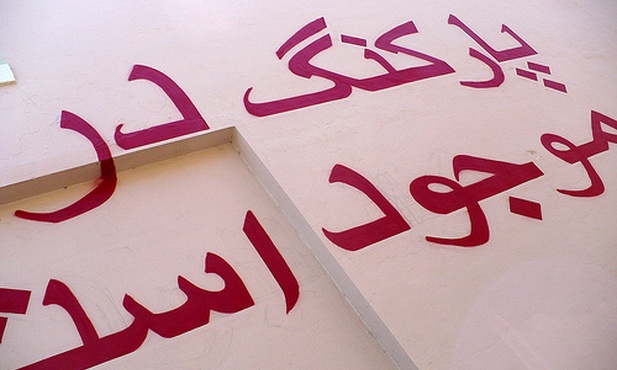 پارکنگ در
موجود است